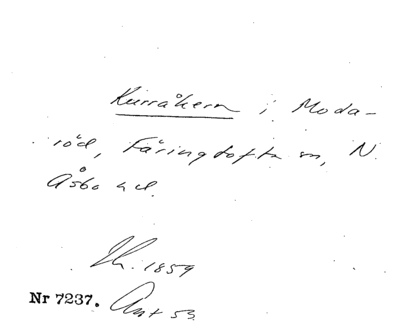 Kurråkern i Moda-
röd, Färingtofta sn, N.
Åsbo hd.
Lh. 1859
Nr 7237. Ant 53